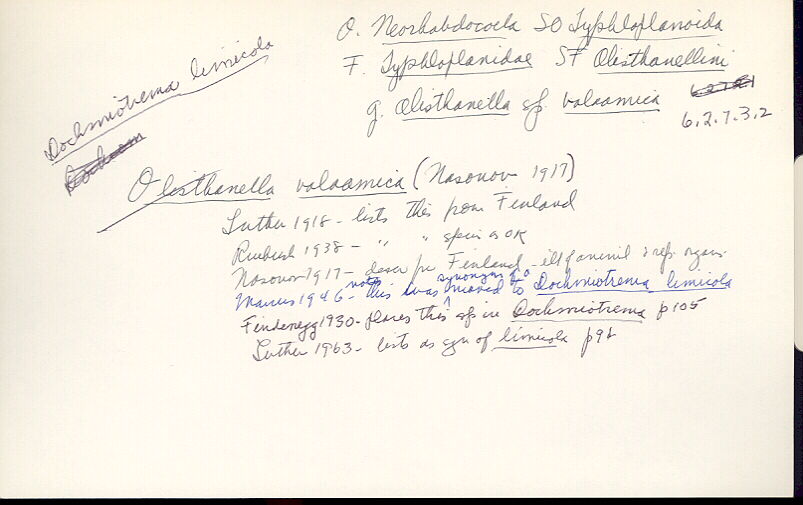 O. Neorhabdocoela SO Typhloplanoida
F. Typhloplanidae SF Olisthanellini
g. Olisthanella sp valaamica
6.2.7.3.2
Dochmiotrema limicola
Olisthanella valaamica (Nasonov 1917)
Luther 1918 - lists this from Finland
1938 - " " species as OK
Nasonov 1917 - descr fr Finland - ill of animal & rep. organs
Marcus 1946 - notes this was synonymized to Dochmiotrema limicola
Findenegg 1930 - places this sp in Dochmiotrema p105
Luther 1963 - lists as syn of limicola p98